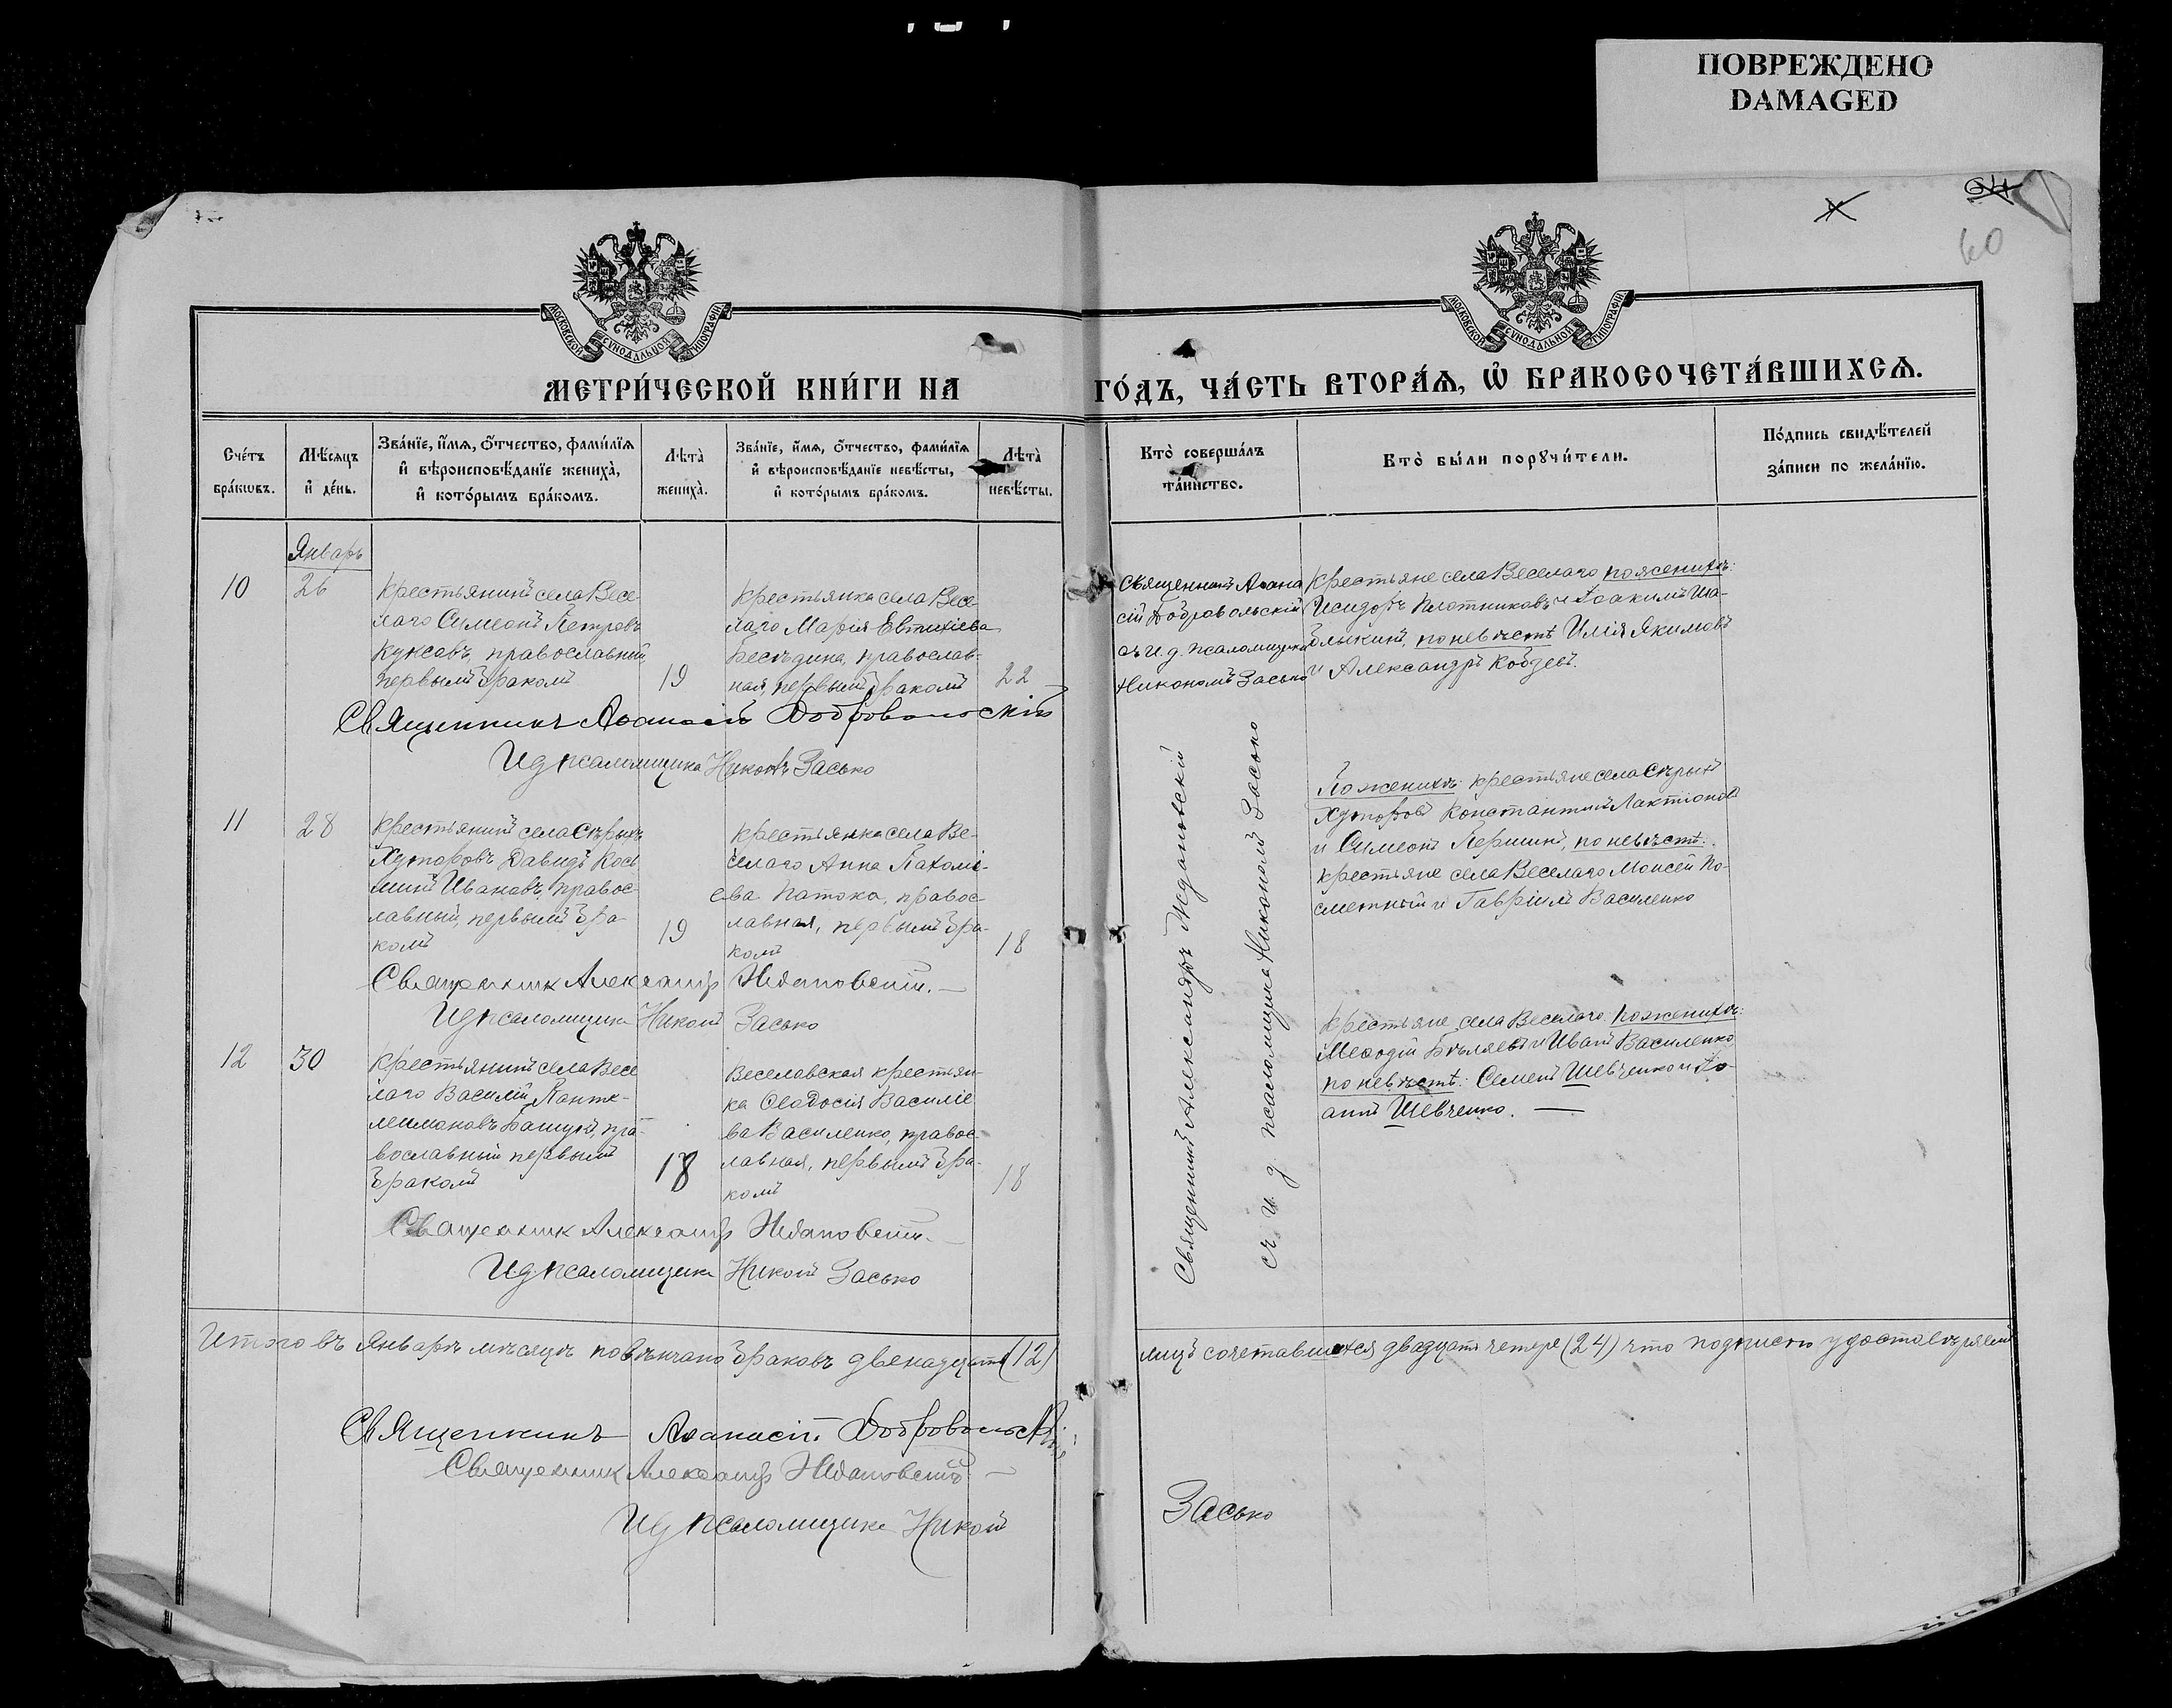 ПОВРЕЖДЕНО
DAMAGED
60
МОСКОВСКОЙ СѴНОДАЛЬНОЙ ТИПОГРАФІИ
МОСКОВСКОЙ СѴНОДАЛЬНОЙ ТИПОГРАФІИ
МЕТРИ́ЧЕСКОЙ КНИ́ГИ НА
ГО́ДЪ, ЧА́СТЬ ВТОРА́Ѧ, Ѡ҆ БРАКОСОЧЕТА́ВШИХСѦ.
Сче́тъ
бра́кѡвъ.
Мѣ́сѧцъ
и҆ де́нь.
Зва́нїе, и҆́мѧ, ѻ҆́тчество, фами́лїѧ
и҆ вѣроисповѣ́данїе жениха̀,
и҆ кото́рымъ бра́комъ.
Лѣта̀
жениха̀.
Зва́нїе, и҆́мѧ, ѻ҆́тчество, фами́лїѧ
и҆ вѣроисповѣ́данїе невѣ́сты,
и҆ кото́рымъ бра́комъ.
Лѣта̀
невѣ́сты.
Кто̀ соверша́лъ
та́инство.
Кто̀ бы́ли порꙋчи́тели.
По́дпись свидѣ́телей
за́писи по жела́нїю.
Январь
10
26
Крестьянинъ села Весе-
лаго Симеонъ Петровъ
Куксавъ, православный,
первымъ бракомъ
19
Крестьянка села Весе-
лаго Марія Евтихіева
Бесѣдина, православ-
ная, первымъ бракомъ
22
Священникъ Аѳана
сій Добровольскій
съ и д. псаломщика
Никономъ Засько
Крестьяне села Веселаго по женихѣ:
Исидоръ Плотниковъ и Іоакимъ Ша-
блыкинъ, по невѣстѣ Илія Якимовъ
и Александръ Кобзевъ.
Священникъ Аѳанасій Добровольскій
И д псаломщика Никонъ Засько
11
28
Крестьянинъ села Сѣрыхъ
Хуторовъ Давидъ Кось
минъ Ивановъ, правос-
лавный, первымъ бра-
комъ
19
Крестьянка села Ве-
селаго Анна Пахомі-
ева Патока, правос-
лавная, первымъ бра-
комъ
18
По женихѣ: крестьяне села Сѣрыхъ
Хуторовъ Константинъ Лактіоновъ
и Симеонъ Першинъ, по невѣстѣ:
крестьяне села Веселаго Моисей По-
сметный и Гавріилъ Василенко
Священникъ Александръ Ждановскій.
И д псаломщика Никонъ Засько
12
30
Крестьянинъ села Весе
лаго Василій Панте-
леимоновъ Башукъ, пра-
вославный первымъ
бракомъ
18
Веселавская крестьян-
ка Ѳеодосія Василіе
ва Василенко, правос-
лавная, первымъ бра-
комъ
18
Крестьяне села Веселаго: по женихѣ:
Меѳодій Бѣляевъ и Иванъ Василенко
по невѣстѣ: Семенъ Шевченко и Іо-
аннъ Шевченко.
Священникъ Александръ Ждановскій
съ и д псаломщика Никономъ Засько
Священникъ Александръ Ждановскій.
И.д. псаломщика Никонъ Засько
Итого въ Январѣ мѣсяцѣ повѣнчано браковъ двенадцать (12)
лицъ сочетавшихся двадцать четыре (24) что подписью удостовѣряемъ
Священникъ Аѳанасій Добровольскій
Священникъ Александръ Ждановскій
И д псаломщика Никонъ
Засько